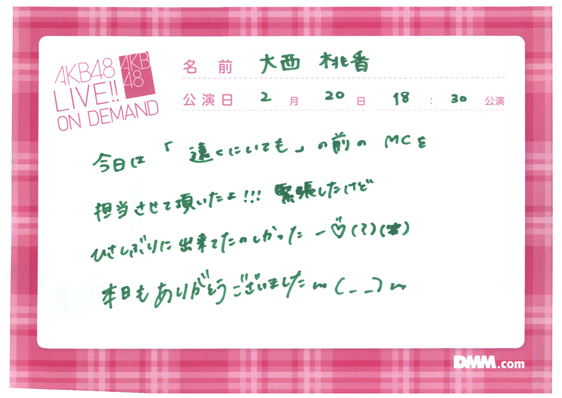 AKB48
LIVE!!
ON DEMAND
AKB
48
名 前 大西 桃香
公演日 2 月 20 日 18 : 30 公演
今日は「遠くにいても」の前の MCを
担当させて頂いたよ!!! 緊張したけど
ひさしぶりに出来てたのしかったー♡(?)(笑)
本日もありがとうございました〜(_ _)〜
DMM.com